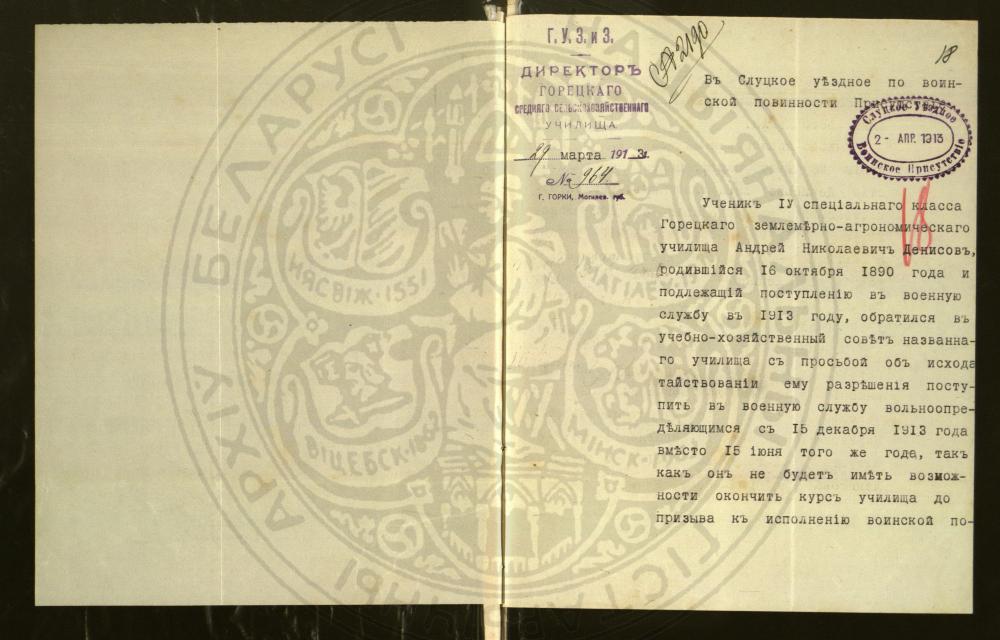 Г. У. З. и З.
ДИРЕКТОРЪ
ГОРЕЦКАГО
СРЕДНЯГО СЕЛЬСКОХОЗЯЙСТВЕННАГО
УЧИЛИЩА
29 марта 1913г.
№ 964.
Г. ГОРКИ, Могилев. губ.
2190
18
Въ Слуцкое уѣздное по воин-
ской повинности Присутствіе.
Слуцкое Уѣздное
2 - АПР. 1913
Воинское Присутствіе
Ученикъ IУ спеціальнаго класса
Горецкаго землемѣрно-агрономическаго
училища Андрей Николаевичъ Денисовъ,
родившійся 16 октября 1890 года и
подлежащій поступленію въ военную
службу въ 1913 году, обратился въ
учебно-хозяйственный совѣтъ названна-
го училища съ просьбой объ исхода
тайствованіи ему разрѣшенія посту-
пить въ военную службу вольноопре-
дѣляющимся съ 15 декабря 1913 года
вмѣсто 15 іюня того же года, такъ
какъ онъ не будетъ имѣть возмож-
ности окончить курсъ училища до
призыва къ исполненію воинской по-
НЯСВІЖ·155
МАГІЛЕ
ВІЦЕБСК·
МІНСК·